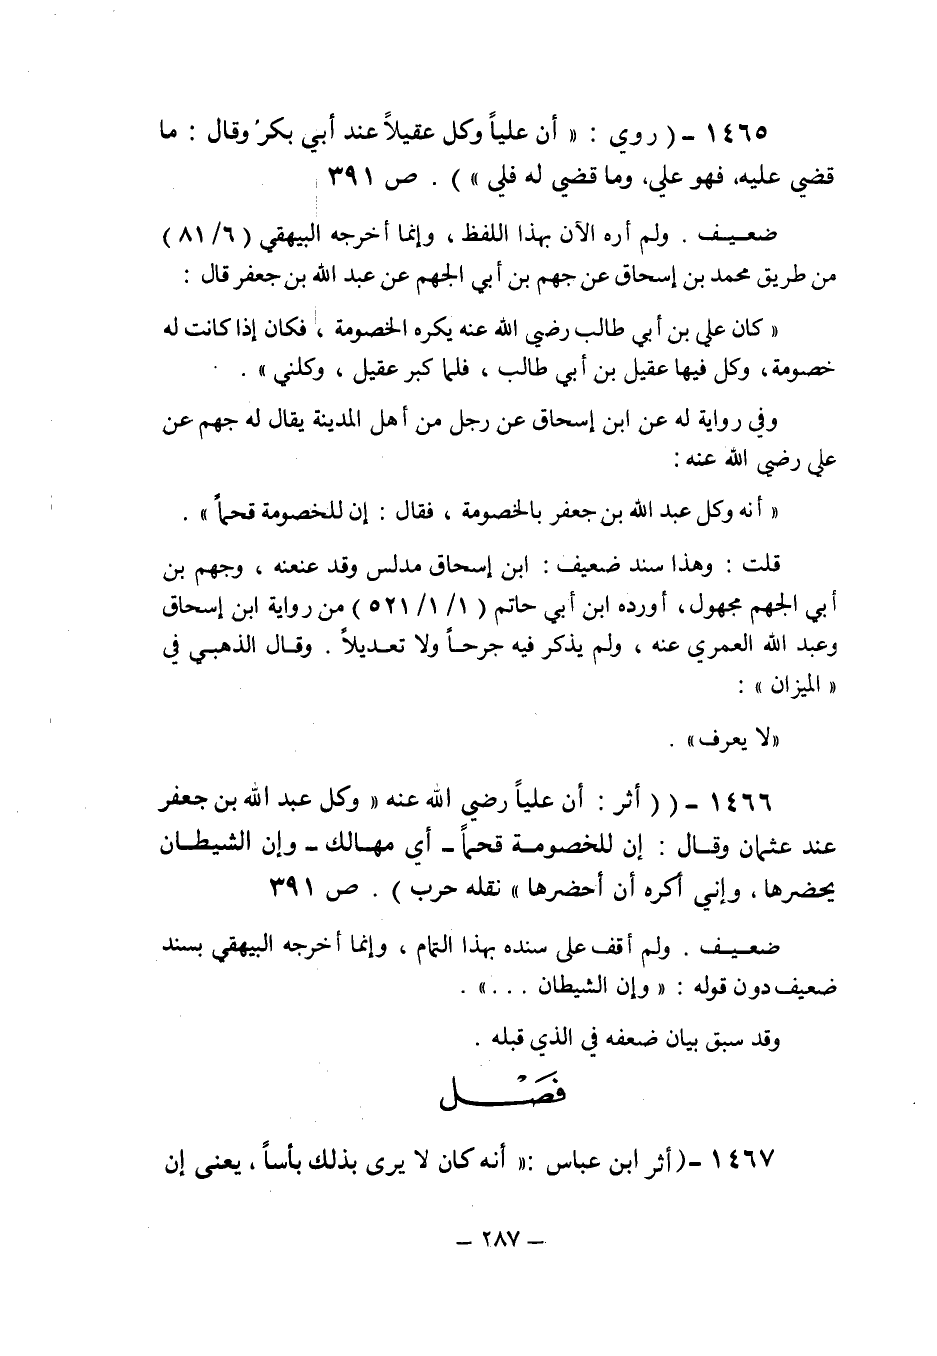 ١٤٦٥ - ( روي : « أن علياً وكل عقيلاً عند أبي بكر وقال : ما
قضي عليه، فهو علي، وما قضي له فلي » ) . ص ٣٩١
ضعيف . ولم أره الآن بهذا اللفظ ، وإنما أخرجه البيهقي ( ٦/ ٨١ )
من طريق محمد بن إسحاق عن جهم بن أبي الجهم عن عبد الله بن جعفر قال :
« كان علي بن أبي طالب رضي الله عنه يكره الخصومة ، فكان إذا كانت له
خصومة، وكل فيها عقيل بن أبي طالب ، فلما كبر عقيل ، وكلني » .
وفي رواية له عن ابن إسحاق عن رجل من أهل المدينة يقال له جهم عن
علي رضي الله عنه :
« أنه وكل عبد الله بن جعفر بالخصومة ، فقال : إن للخصومة قحماً » .
قلت : وهذا سند ضعيف : ابن إسحاق مدلس وقد عنعنه ، وجهم بن
أبي الجهم مجهول، أورده ابن أبي حاتم ( ١/ ١/ ٥٢١ ) من رواية ابن إسحاق
وعبد الله العمري عنه ، ولم يذكر فيه جرحاً ولا تعديلاً . وقال الذهبي في
« الميزان » :
«لا يعرف» .
١٤٦٦ - ( ( أثر : أن علياً رضي الله عنه « وكل عبد الله بن جعفر
عند عثمان وقال : إن للخصومة قحماً - أي مهالك - وإن الشيطان
يحضرها ، وإني أكره أن أحضرها » نقله حرب ) . ص ٣٩١
ضعيف . ولم أقف على سنده بهذا التمام ، وإنما أخرجه البيهقي بسند
ضعيف دون قوله : « وإن الشيطان . . .» .
وقد سبق بيان ضعفه في الذي قبله .
فَصْل
١٤٦٧ -( أثر ابن عباس :« أنه كان لا يرى بذلك بأساً ، يعني إن
- ٢٨٧ -